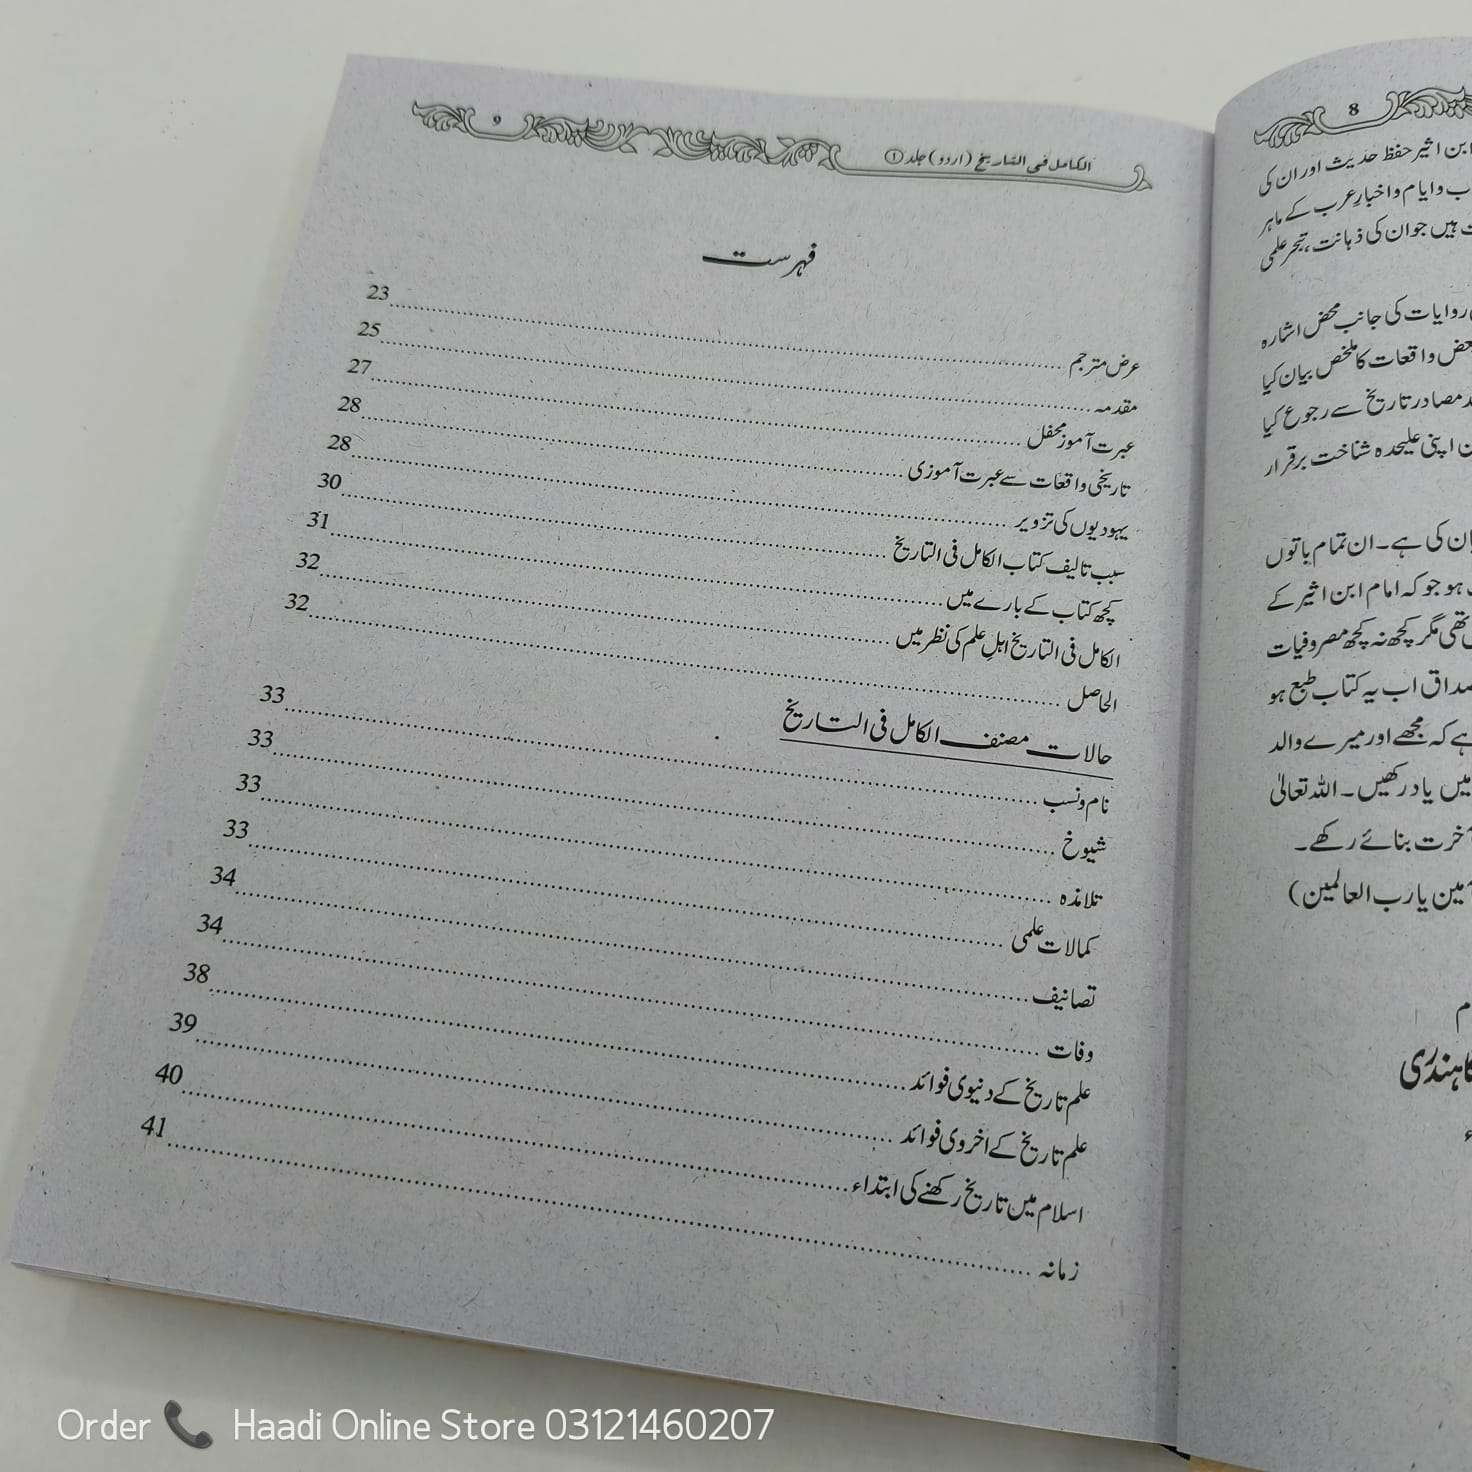 8
ابن اثیر حفظ حدیث اور ان کی
و ایام و اخبارِ عرب کے ماہر
ہیں جو ان کی ذہانت، تبحر علمی
روایات کی جانب محض اشارہ
واقعات کا ملخص بیان کیا
مصادر تاریخ سے رجوع کیا
اپنی علیحدہ شناخت برقرار
کی ہے۔ ان تمام باتوں
ہو جو کہ امام ابن اثیر کے
تھی مگر کچھ نہ کچھ مصروفیات
اب یہ کتاب طبع ہو
ہے کہ مجھے اور میرے والد
میں یاد رکھیں۔ اللہ تعالیٰ
آخرت بنائے رکھے۔
آمین یا رب العالمین)
الکامل فی التاریخ (اردو) جلد ①
9
فہرست
عرض مترجم 23
مقدمہ 25
عبرت آموز محفل 27
تاریخی واقعات سے عبرت آموزی 28
یہودیوں کی تزویر 28
سبب تالیف کتاب الکامل فی التاریخ 30
کچھ کتاب کے بارے میں 31
الکامل فی التاریخ اہلِ علم کی نظر میں 32
الحاصل 32
حالات مصنف الکامل فی التاریخ
نام و نسب 33
شیوخ 33
تلامذہ 33
کمالات علمی 33
تصانیف 34
وفات 34
علم تاریخ کے دنیوی فوائد 38
علم تاریخ کے اخروی فوائد 39
اسلام میں تاریخ رکھنے کی ابتداء 40
زمانہ 41
Order Haadi Online Store 03121460207